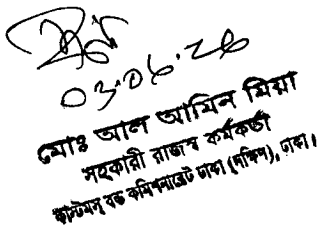 03.06.26
মোঃ আল আমিন মিয়া
সহকারী রাজস্ব কর্মকর্তা
কাস্টমস্ বন্ড কমিশনারেট ঢাকা (দক্ষিণ), ঢাকা।